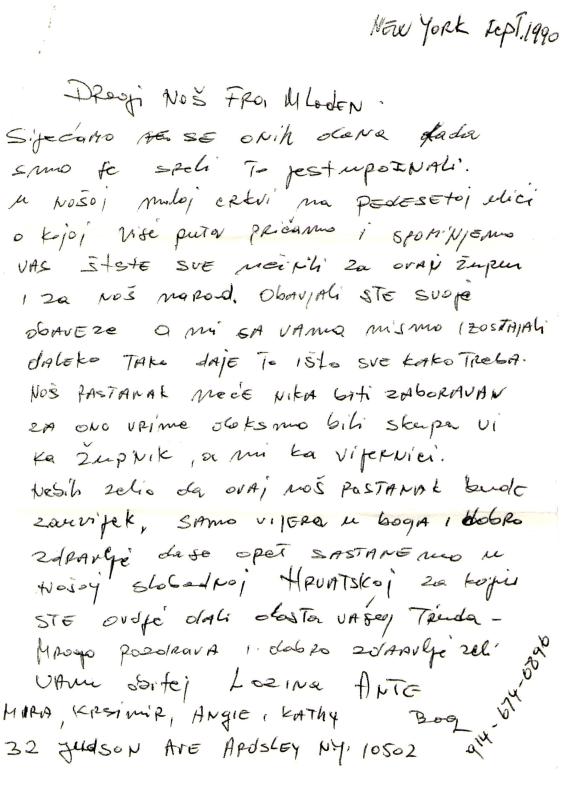 NEW YORK SEPT. 1990
Dragi NAŠ FRA MLADEN.
Sijećamo SE ONIH dana kada
smo se sreli To jest upoznali.
u NAŠOJ miloj CRKVI na PEDESETOJ ulici
o kojoj više puta PRIČAMO i SPOMINJEMO
VAS ŠTSTE SVE učinili za ovaj župu
I za NAŠ narod. Obavjali STE SVOJE
obaveze a mi SA VAMA nismo IZOSTAJALI
daleko TAKO daje To išlo SVE KAKO TREBA.
NAŠ RASTANAK neće NIKA biti ZABORAVAN
ZA ONO VRIME doksmo bili skupa VI
KA ŽUPNIK, a mi ka vijernici.
Nebih zelio da ovaj NAŠ RASTANAK bude
zauvijek, SAMO VIJERA u boga I dobro
ZDRAVLJE dase opet SASTANEMO u
Našoj slobodnoj HRVATSKOJ za koju
STE ovdje dali dosta VAŠEG TRUDA -
Mnogo POZDRAVA I dobro ZDRAVLJE zeli
VAMA obitej LOZINA ANTE
MIRA, KRSIMIR, ANGIE i KATHY Bog
32 JUDSON AVE ARDSLEY NY. 10502
914-674-0896